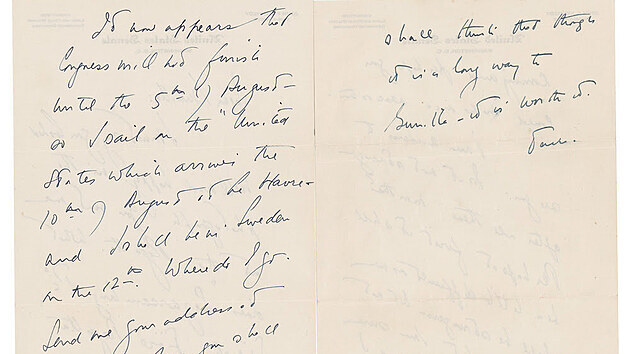 It now appears that
Congress will not finish
until the 5th of August -
so I sail on the "United
States which arrives the
10th of August at Le Havre -
and I shall be in Sweden
on the 12th. Where do I go.
Send me your address at
you shall
shall think that though
it is a long way to
Gunilla - it is worth it.
Jack.